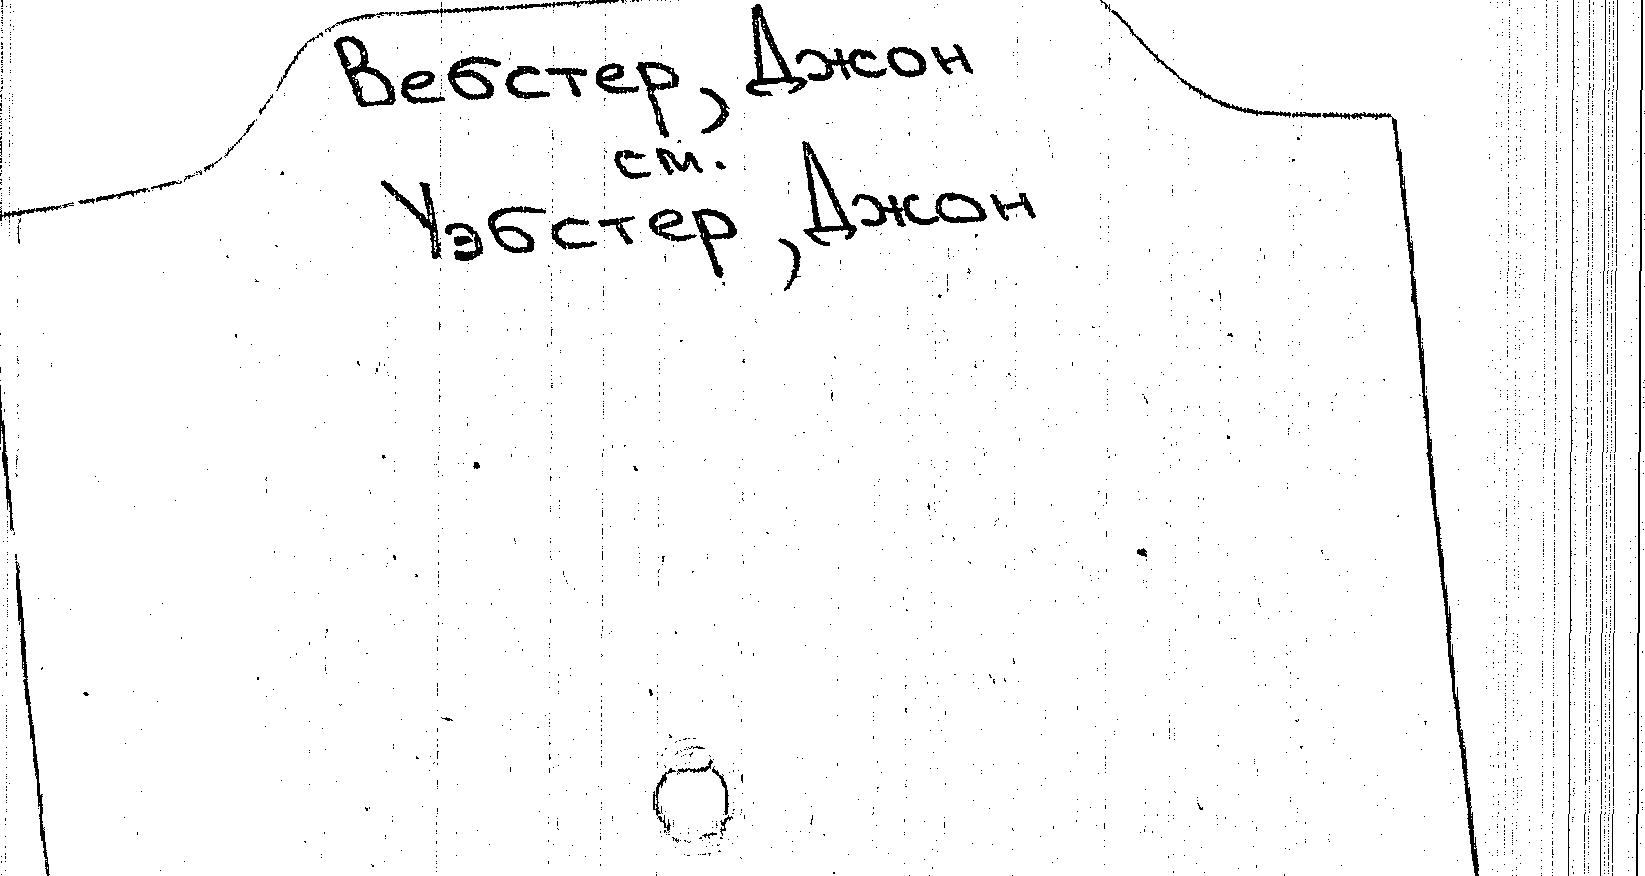 Вебстер, Джон
см.
Уэбстер, Джон